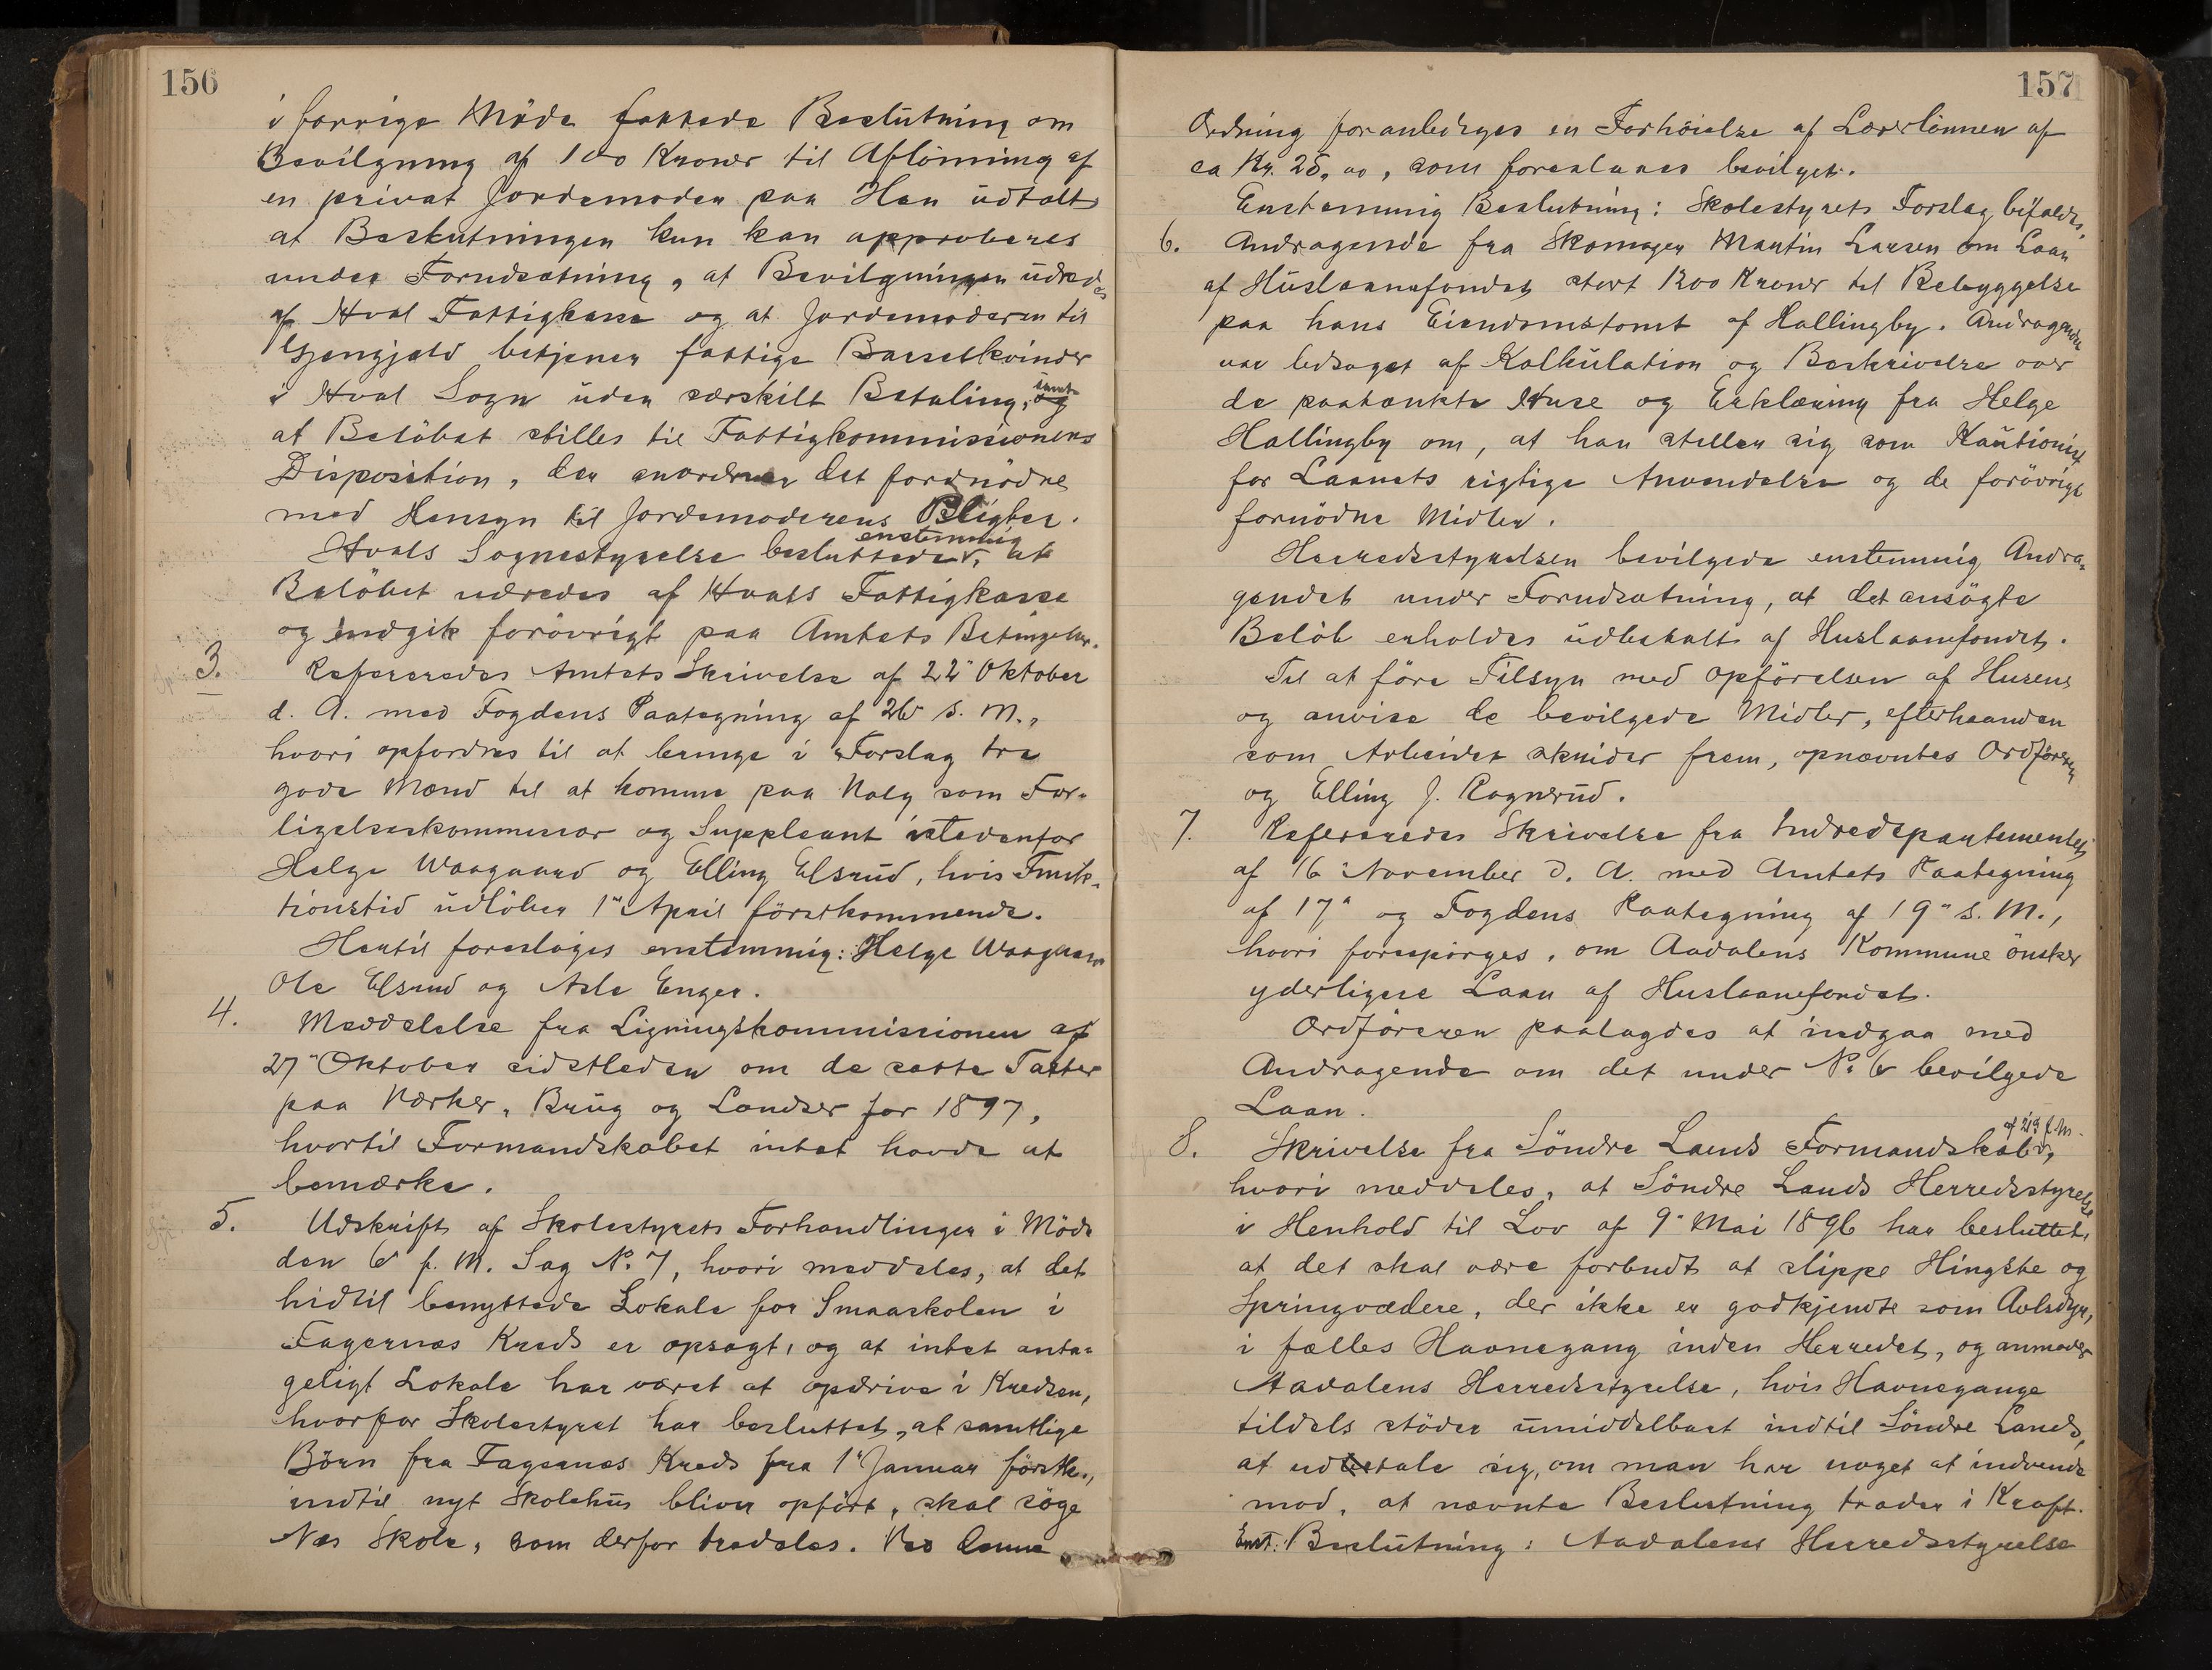 156
i forrige Möde fattede Beslutning om
Bevilgning af 100 Kroner til Aflönning af
en privat Jordemoder paa Hen udtalt
at Beslutningen kun kan approberes
under Forudsætning, at Bevilgningen udredes
af Hval Fattigkasse og at Jordemoderen til
Gjengjæld betjener fattige Barselkvinder
i Hval Sogn uden særskilt Betaling, samt
at Belöbet stilles til Fattigkommissionens
Disposition, der anordner det fornödne
med Hensyn til Jordemoderens Pligter.
Hvals Sognestyrelse besluttede enstemmig, at
Belöbet udredes af Hvals Fattigkasse
og indgik forövrigt paa Amtets Betingelser.
3. Refereredes Amtets Skrivelse af 22" Oktober
d. A. med Fogdens Paategning af 26 s. M.,
hvori opfordres til at bringe i Forslag tre
gode Mænd til at komme paa Valg som For-
ligelseskommissær og Suppleant istedenfor
Helge Waagaard og Elling Elsrud, hvis Funk-
tionstid udlöber 1" April förstkommende.
Hertil foresloges enstemmig: Helge Waagaard
Ole Elsrud og Asle Enger.
4. Meddelelse fra Ligningskommissionen af
27" Oktober sidstleden om de satte Taxter
paa Værker, Brug og Landser for 1897,
hvortil Formandskabet intet havde at
bemærke.
5. Udskrift af Skolestyrets Forhandlinger i Möde
den 6 f. M. Sag No. 7, hvori meddeles, at det
hidtil benyttede Lokale for Smaaskolen i
Fagernæs Kreds er opsagt, og at intet anta-
geligt Lokale har været at opdrive i Kredsen,
hvorfor Skolestyret har besluttet, at samtlige
Börn fra Fagernæs Kreds fra 1" Januar förstk.,
indtil nyt Skolehus bliver opfört, skal söge
Næs Skole, som derfor tredeles. Ved denne
157
Ordning foranlediges en Forhöielse af Lærerlönnen af
ca Kr. 25,00, som foreslaaes bevilget.
Enstemmig Beslutning: Skolestyrets Forslag bifaldes.
6. Andragende fra Skomager Martin Larsen om Laan
af Huslaanefondet stort 1200 Kroner til Bebyggelse
paa hans Eiendomstomt af Hallingby. Andragendet
var ledsaget af Kalkulation og Beskrivelse over
de paatænkte Huse og Erklæring fra Helge
Hallingby om, at han stiller sig som Kautionist
for Laanets rigtige Anvendelse og de forövrigt
fornödne Midler.
Herredsstyrelsen bevilgede enstemmig Andra-
gendet under Forudsætning, at det ansögte
Belöb erholdes udbetalt af Huslaanefondet.
Til at före Tilsyn med Opförelsen af Husene
og anvise de bevilgede Midler, efterhaanden
som Arbeidet skrider frem, opnævntes Ordföreren
og Elling J. Ragnerud.
7. Refereredes Skrivelse fra Indredepartementet
af 16" November d. A. med Amtets Paategning
af 17" og Fogdens Paategning af 19" s. M.,
hvori forespörges, om Aadalens Kommune önsker
yderligere Laan af Huslaanefondet.
Ordföreren paalagdes at indgaa med
Andragende om det under No. 6 bevilgede
Laan.
8. Skrivelse fra Söndre Lands Formandskab af 29 f. M.,
hvori meddeles, at Söndre Lands Herredsstyrelse
i Henhold til Lov af 9" Mai 1896 har besluttet,
at det skal være forbudt at slippe Hingste og
Springvædere, der ikke er godkjendte som Avlsdyr,
i fælles Havnegang inden Herredet, og anmoder
Aadalens Herredsstyrelse, hvis Havnegange
tildels stöder umiddelbart indtil Söndre Lands,
at udtale sig, om man har noget at indvende
mod, at nævnte Beslutning træder i Kraft.
Enst. Beslutning: Aadalens Herredsstyrelse